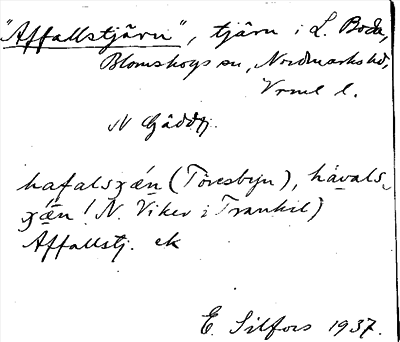 "Affallstjärn", tjärn i L. Boda,
Blomskogs sn, Nordmarks hd,
Vrml l.
N Gäddtj.
hafalsɟǽn (Töresbyn), håvals-
ɟǽn (N. Viker i Trankil)
Affallstj. ek
E. Silfors 1937.